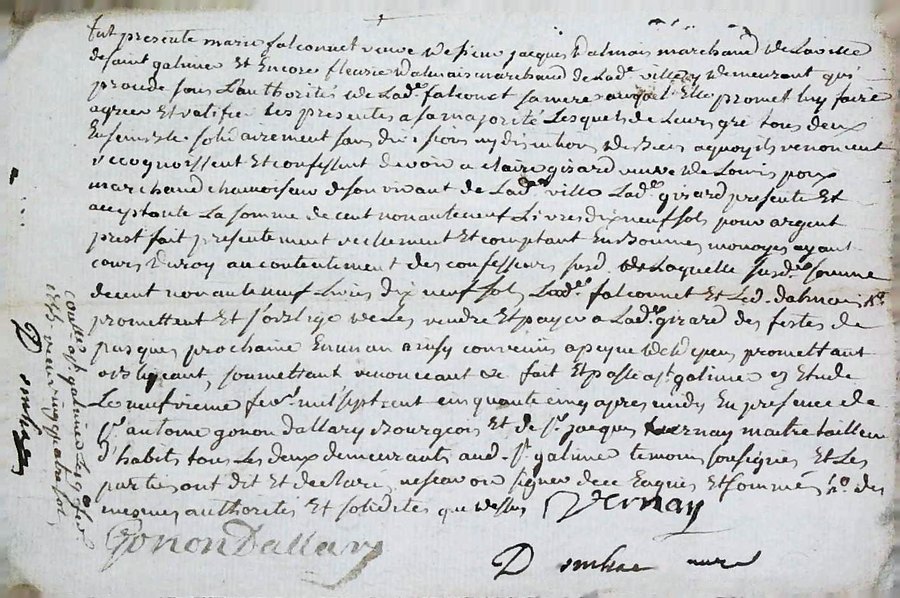 fut presente marie falconnet veuve de sieur jacques dalmais marchand de la ville
de saint galmier Et Encore fleurie dalmais marchand de lad.e ville y demeurant qui
procede sous l'authorité de lad.e falconet sa mere auquel Elle promet luy faire
agreer Et ratifier les presentes a sa majorité Lesquels de leurs gré tous deux
Ensemble solidairement sans division ny discution des biens a quoy ils renoncent
recognoissent Et confessent devoir a claire girard veuve de Louis poux
marchand chamoiseur de son vivant de lad.e ville lad.e girard presente Et
acceptante La somme de cent nonante neuf Livres dix neuf sols pour argent
prest fait presentement reellement Et comptant En bonnes monoyes ayant
cours du roy au contentement des confesseurs susd. de laquelle susd.e somme
de cent nonante neuf Livres dix neuf sols Lad.e falconnet Et led. dalmais
promettent Et s'oblige de les rendre Et payer a lad.e girard des festes de
pasques prochaine En un an ainsy convenus a peyne de depens promettant
obligeant, soumettant renonceant &c fait Et passé a st galmier En Etude
Le neufvieme fev.r mil sept cent cinquante cinq apres midy En presence de
s.r antoine gonon dallary Bourgeois Et de s.r jacques vernay maitre tailleur
d'habits tous Les deux demeurants aud. s.t galmier temoins soussignés Et Les
parties ont dit Et declaré ne scavoir signer de ce Enquis Et sommés des
mesmes authorités Et solidités que dessus Vernay
Gonon Dallary
Controllé a st galmier Le 9 fev.r
1755 receu vingt quatre sols